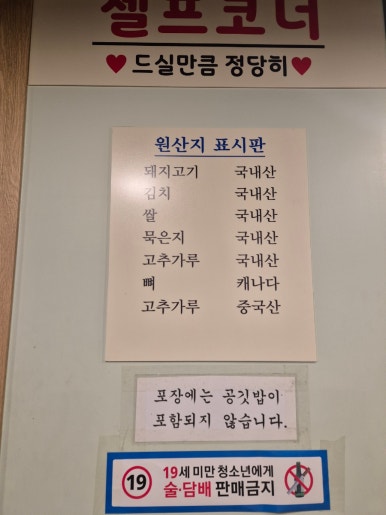 셀프코너
♥ 드실만큼 정당히 ♥
원산지 표시판
돼지고기 국내산
김치 국내산
쌀 국내산
묵은지 국내산
고추가루 국내산
뼈 캐나다
고추가루 중국산
포장에는 공깃밥이
포함되지 않습니다.
19 19세 미만 청소년에게
술·담배 판매금지